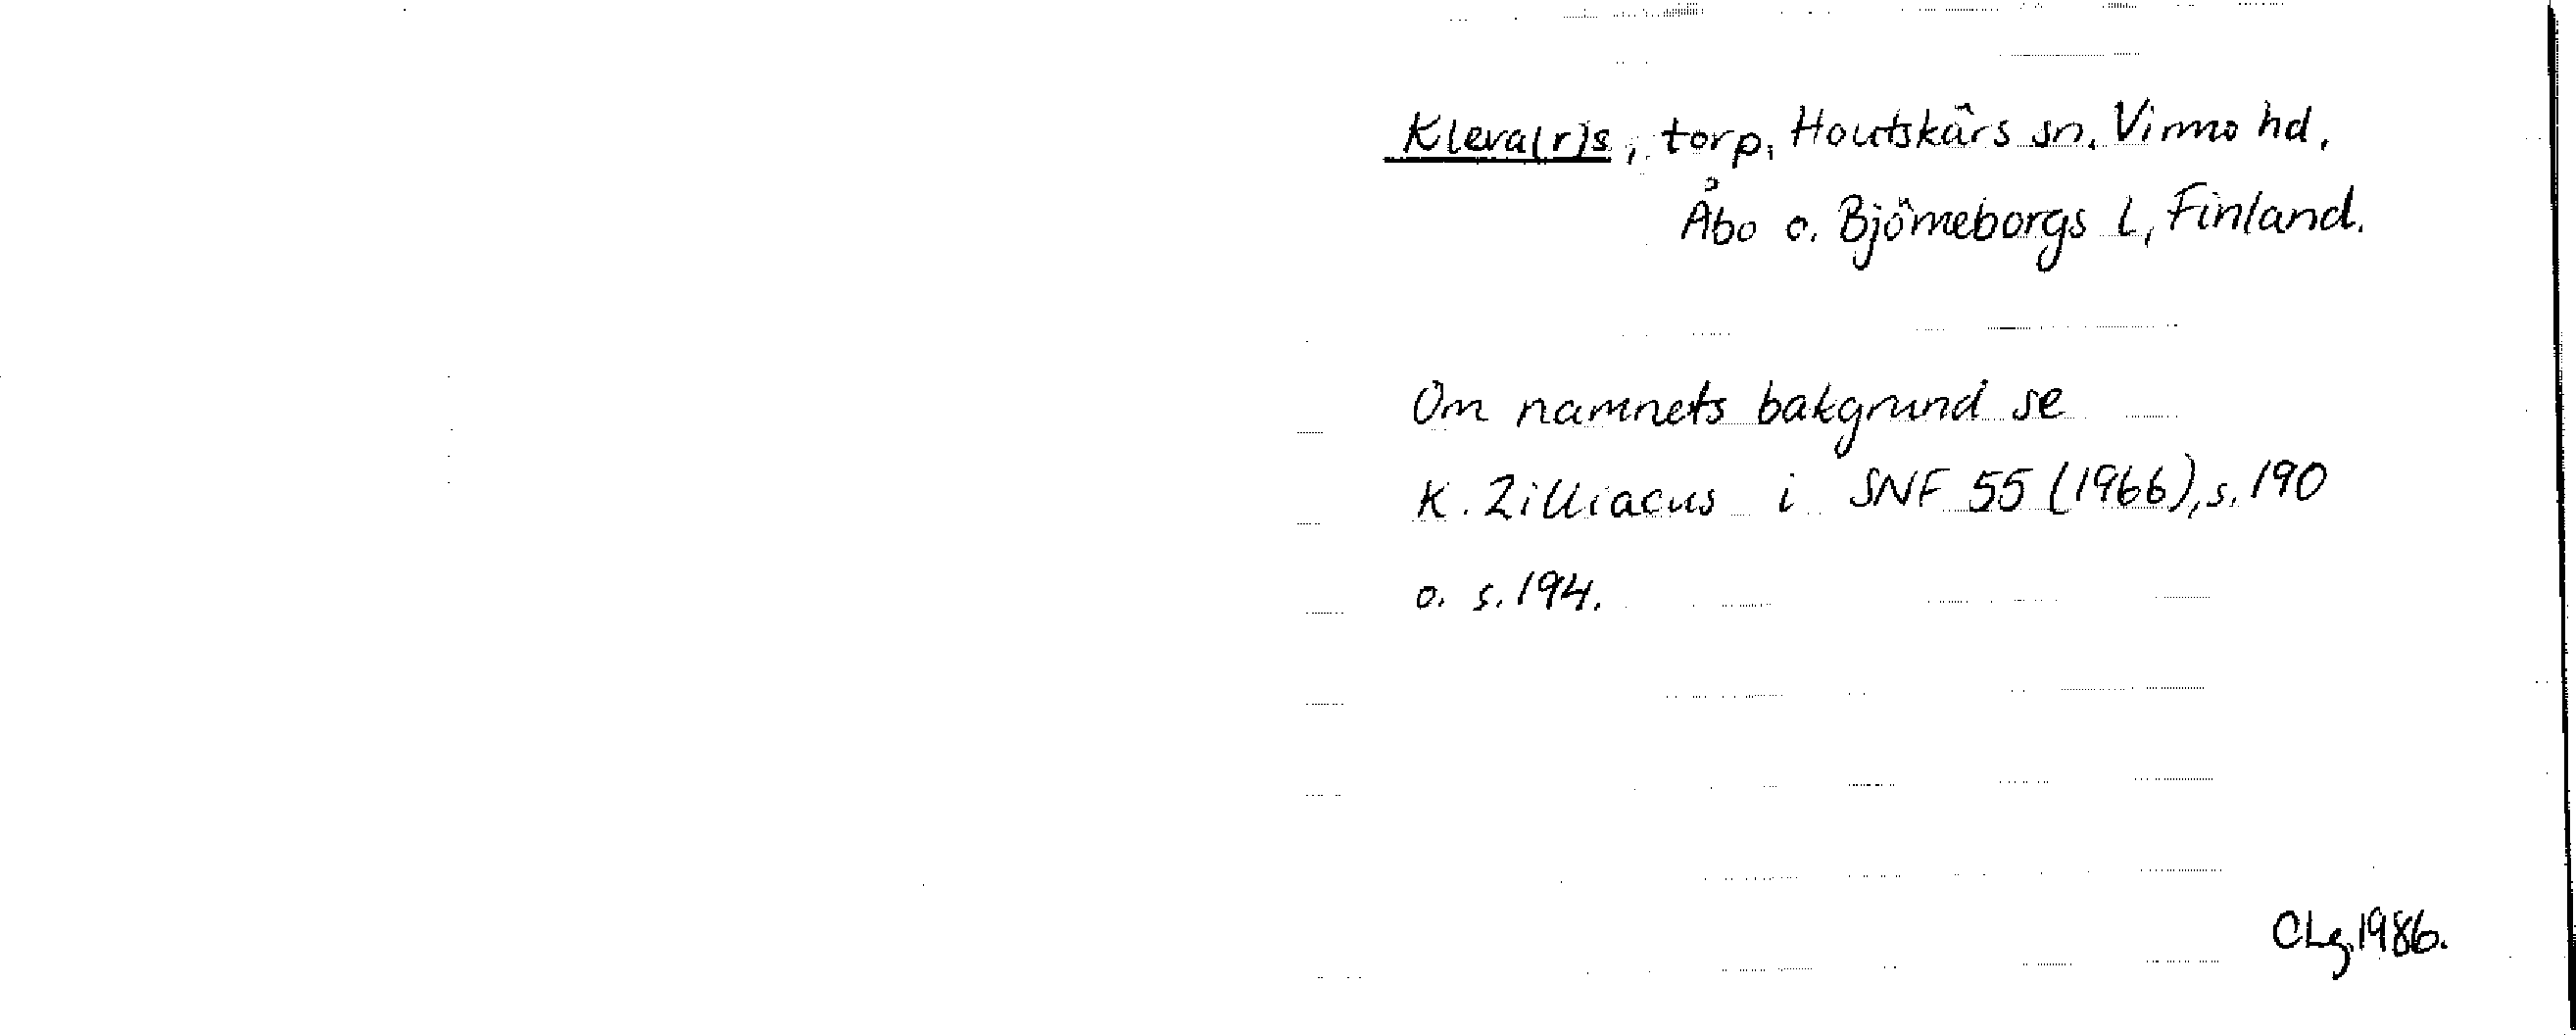 Kleva(r)s, torp, Houtskärs sn, Virmo hd,
Åbo o. Björneborgs l, Finland.
Om namnets bakgrund se
K. Zilliacus i SNF 55 (1966), s. 190
o. s. 194.
CLg 1986.